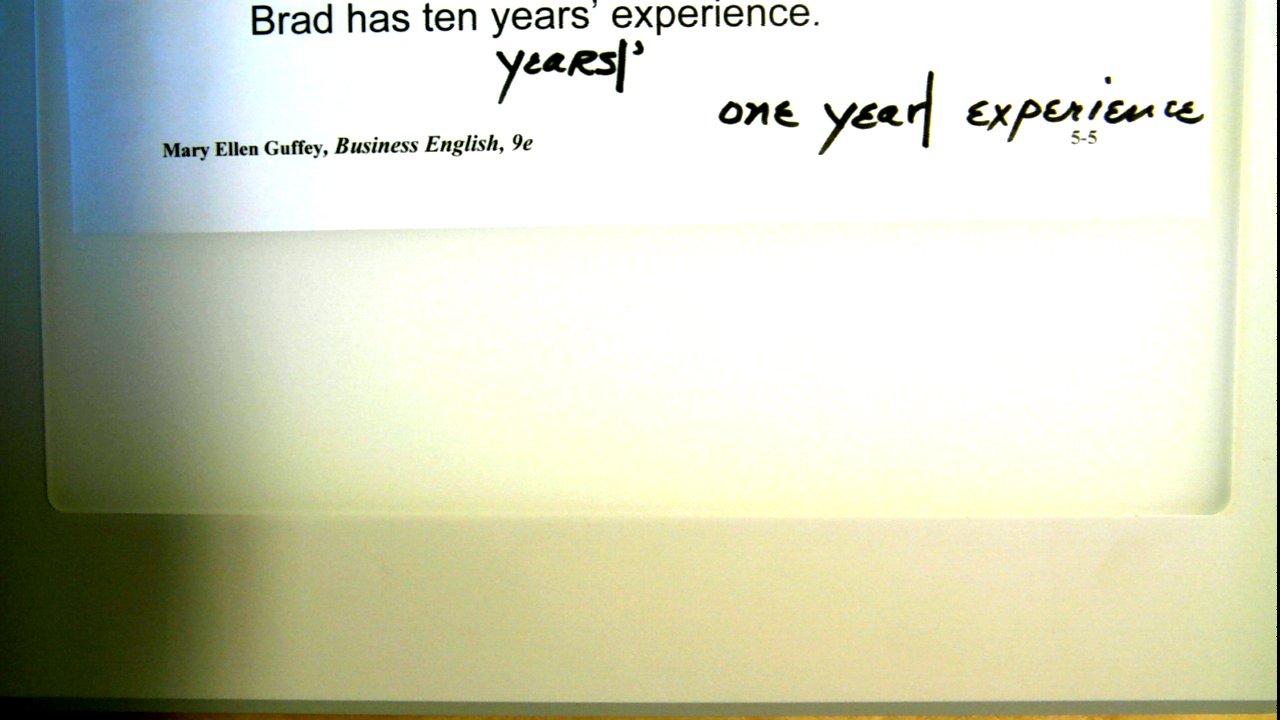 Brad has ten years’ experience.
years|’
one year| experience
Mary Ellen Guffey, Business English, 9e
5-5